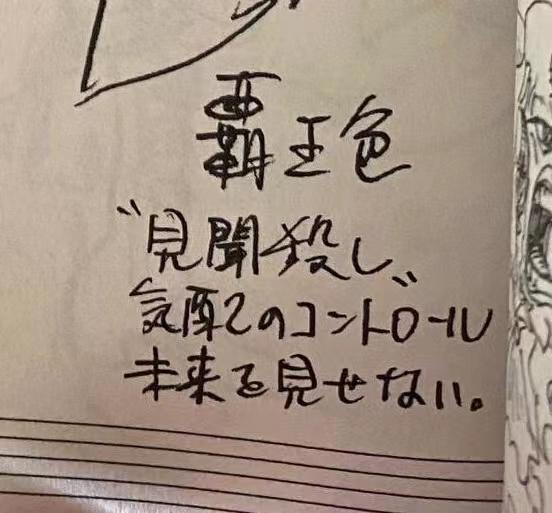 覇王色
"見聞殺し"
気配のコントロール
未来を見せない。